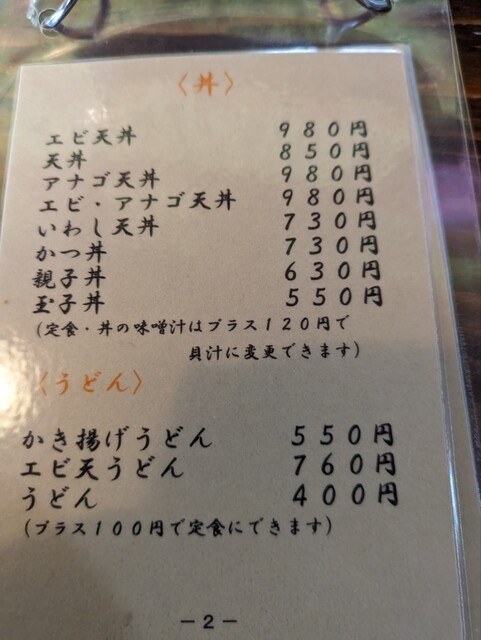 〈丼〉
エビ天丼 980円
天丼 850円
アナゴ天丼 980円
エビ・アナゴ天丼 980円
いわし天丼 730円
かつ丼 730円
親子丼 630円
玉子丼 550円
(定食・丼の味噌汁はプラス120円で
貝汁に変更できます)
〈うどん〉
かき揚げうどん 550円
エビ天うどん 760円
うどん 400円
(プラス100円で定食にできます)
－2－